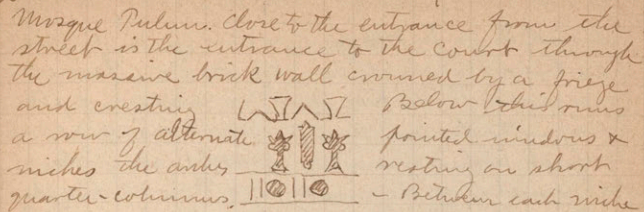 Mosque Tulun. Close to the entrance from the
street is the entrance to the court through
the massive brick wall crowned by a frieze
and cresting Below this runs
a row of alternate pointed windows &
niches the arches resting on short
quarter-columns. – Between each niche